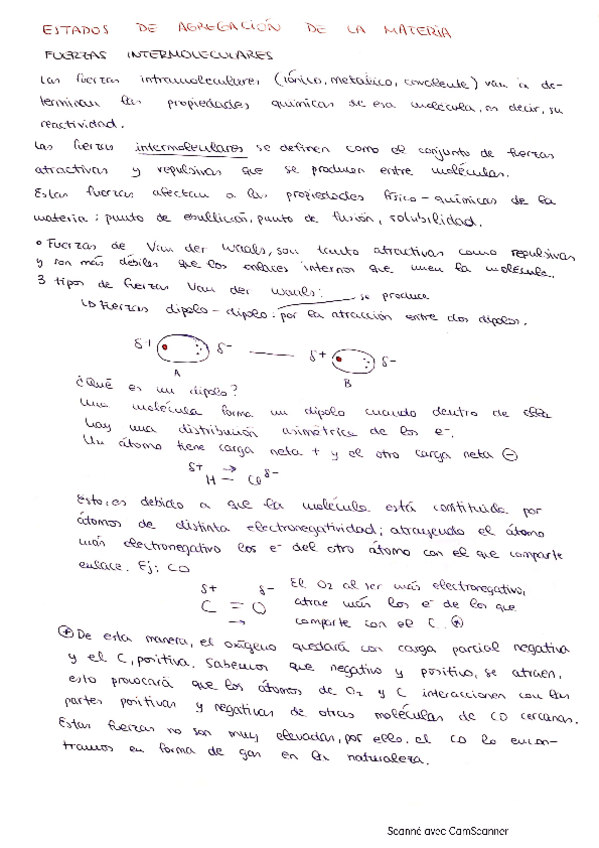 ESTADOS DE AGREGACIÓN DE LA MATERIA
FUERZAS INTERMOLECULARES
Las fuerzas intramoleculares (iónico, metálico, covalente) van a de-
terminar las propiedades químicas de esa molécula, es decir, su
reactividad.
Las fuerzas intermoleculares se definen como el conjunto de fuerzas
atractivas y repulsivas que se producen entre moléculas.
Estas fuerzas afectan a las propiedades físico-químicas de la
materia: punto de ebullición, punto de fusión, solubilidad.
• Fuerzas de Van der Waals, son tanto atractivas como repulsivas
y son más débiles que los enlaces internos que unen la molécula.
3 tipos de fuerzas Van der Waals:
se produce
↳ Fuerzas dipolo-dipolo: por la atracción entre dos dipolos.
δ+ δ- — δ+ δ-
A B
¿Qué es un dipolo?
Una molécula forma un dipolo cuando dentro de ella
hay una distribución asimétrica de los e-.
Un átomo tiene carga neta + y el otro carga neta ⊖
δ+ → δ-
H — Cl
Esto, es debido a que la molécula está constituida por
átomos de distinta electronegatividad; atrayendo el átomo
más electronegativo los e- del otro átomo con el que comparte
enlace. Ej: CO
δ+ δ- El O2 al ser más electronegativo,
C = O atrae más los e- de los que
→ comparte con el C. ⊛
⊛ De esta manera, el oxígeno quedará con carga parcial negativa
y el C, positiva. Sabemos que negativo y positivo, se atraen,
esto provocará que los átomos de O2 y C interaccionen con las
partes positivas y negativas de otras moléculas de CO cercanas.
Estas fuerzas no son muy elevadas, por ello, el CO lo encon-
tramos en forma de gas en la naturaleza.
Scanné avec CamScanner